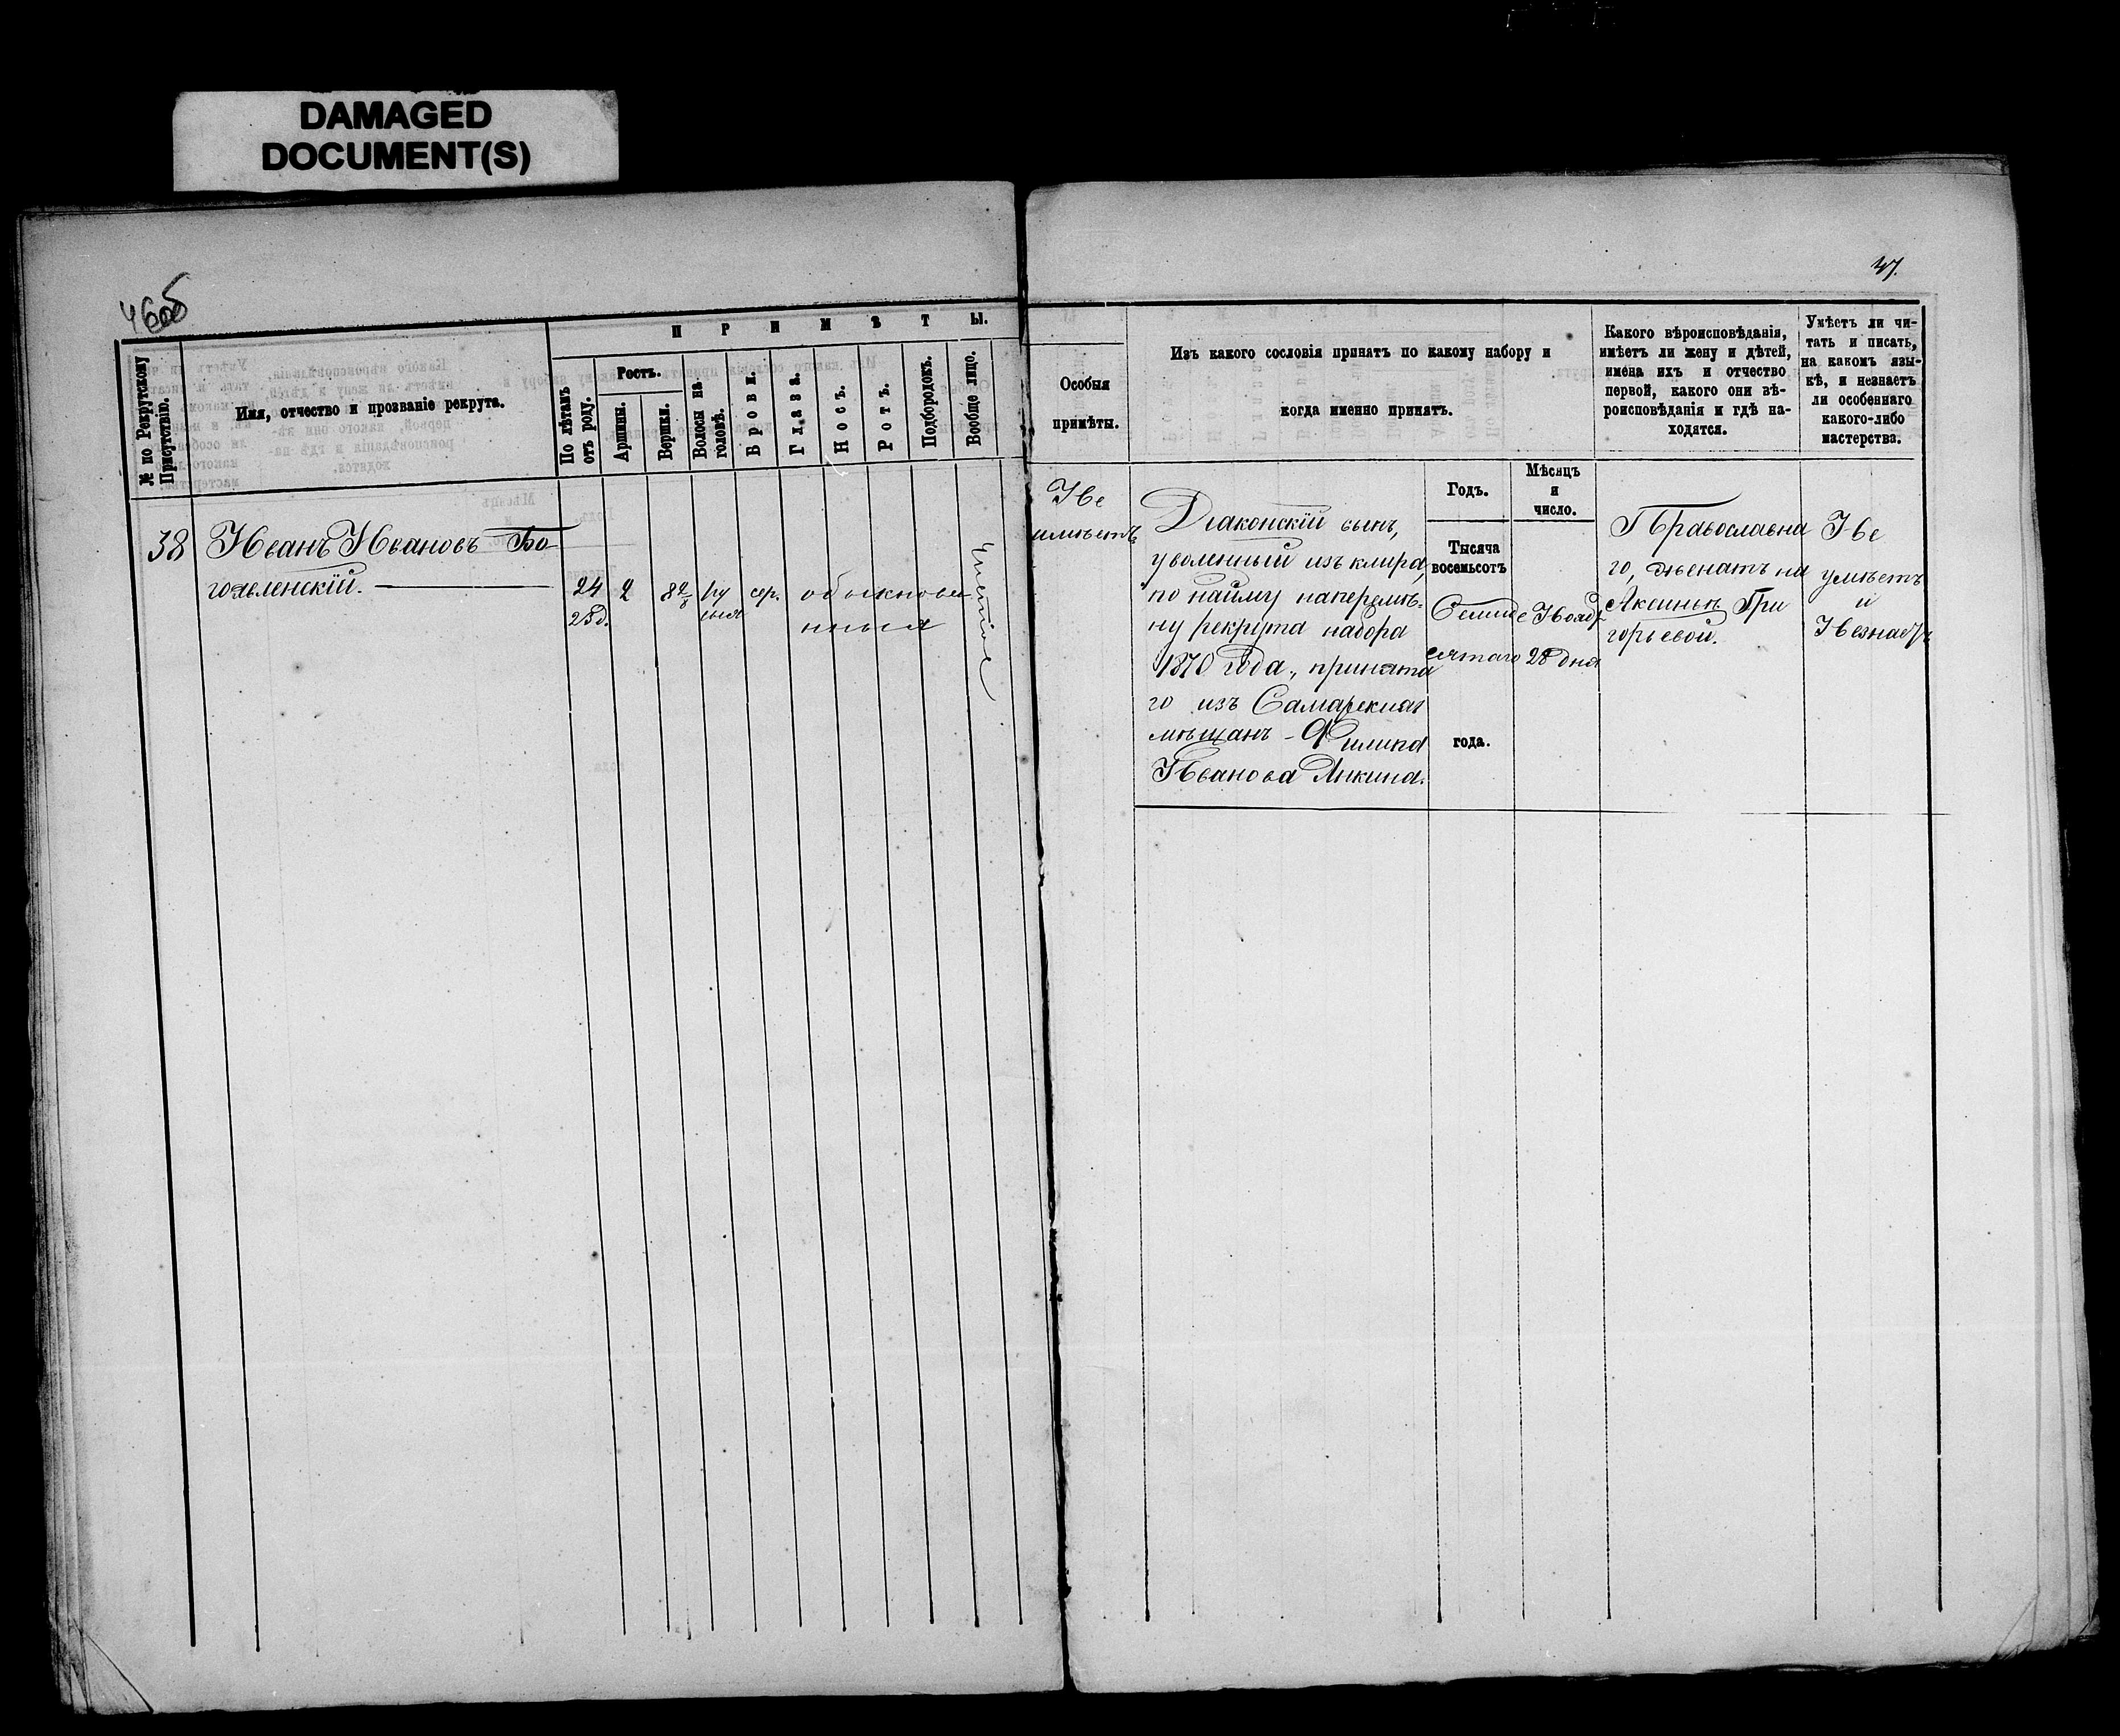 DAMAGED
DOCUMENT(S)
47.
№ по Рекрутскому
Присутствію.
Имя, отчество и прозваніе рекрута.
ПРИМѢТЫ.
По лѣтамъ
отъ роду.
Ростъ.
Аршины.
Вершки.
Волосы на
головѣ.
Брови.
Глаза.
Носъ.
Ротъ.
Подбородокъ.
Вообще лицо.
Особыя
примѣты.
Изъ какого сословія принятъ по какому набору и
когда именно принятъ.
Какого вѣроисповѣданія,
имѣетъ ли жену и дѣтей,
имена ихъ и отчество
первой, какого они вѣ-
роисповѣданія и гдѣ на-
ходятся.
Умѣетъ ли чи-
тать и писать,
на какомъ язы-
кѣ, и незнаетъ
ли особеннаго
какого-либо
мастерства.
Годъ.
Мѣсяцъ
и
число.
38
Иванъ Ивановъ Бо
гоявленскій.
24
2
8 2/8
ру
сыя
сер.
обыкновен
ныя
чистое
Не
имѣетъ
Діаконскій сынъ,
уволенный изъ клира,
по найму наперемѣ-
ну рекрута набора
1870 года, принята
го изъ Самарскихъ
мѣщанъ - Филипа
Иванова Янкина.
Тысяча
восемьсотъ
Семиде
сятаго
года.
Ноября
28 дня
Православна
го, женатъ на
Аксиньѣ Гри
горьевой.
Не
умѣетъ
и
Незнаетъ